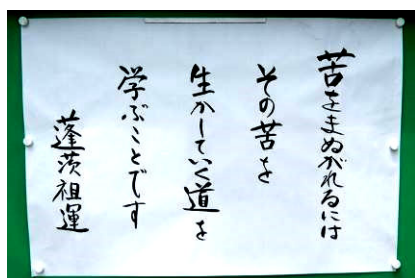 苦をまぬがれるには
その苦を
生かしていく道を
学ぶことです
蓬茨祖運